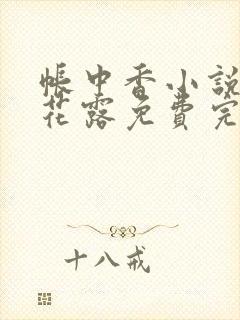 帳中香小說
花露免費完
十八戒